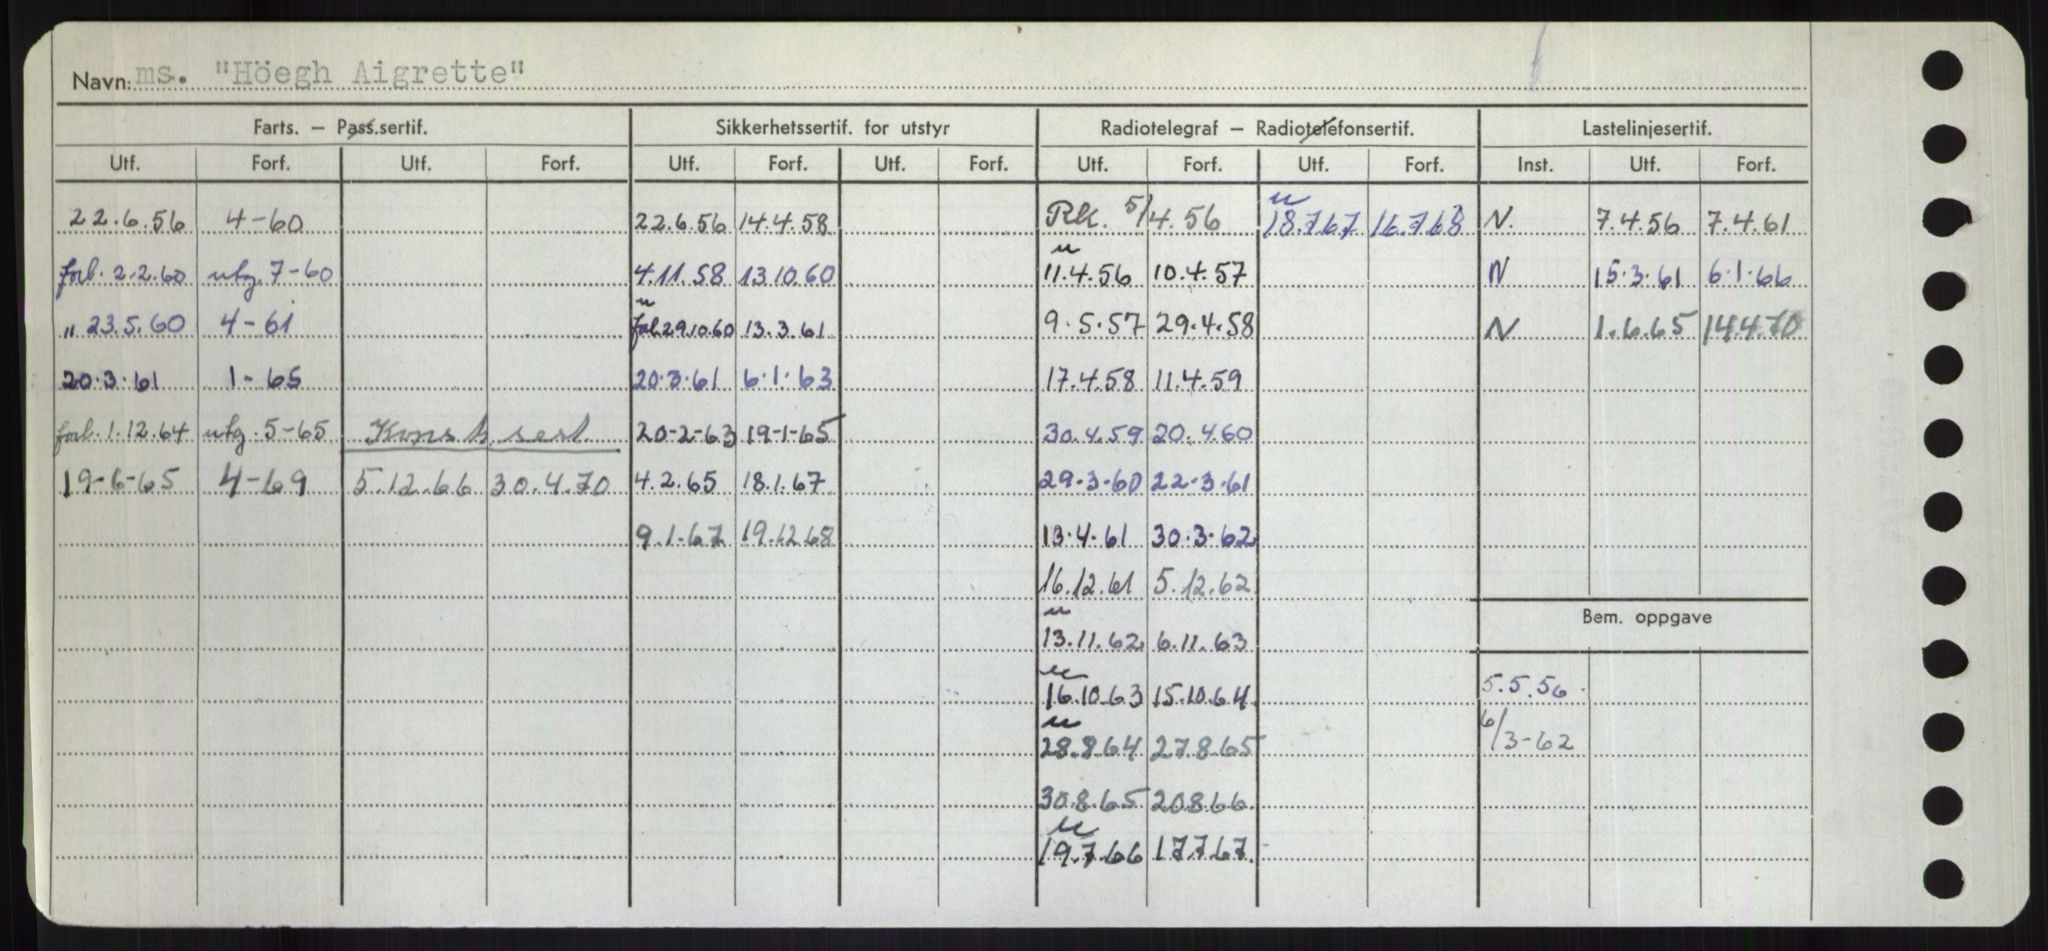 Navn: ms. "Höegh Aigrette"
Farts. – Pass.sertif. Sikkerhetssertif. for utstyr Radiotelegraf – Radiotelefonsertif. Lastelinjesertif.
Utf. Forf. Utf. Forf. Utf. Forf. Utf. Forf. Utf. Forf. Utf. Forf. Inst. Utf. Forf.
22.6.56 4-60 22.6.56 14.4.58 Rk. 5/4.56 u 18.7.67 16.7.68 N. 7.4.56 7.4.61
forl. 2.2.60 utg. 7-60 4.11.58 13.10.60 u 11.4.56 10.4.57 N 15.3.61 6.1.66
" 23.5.60 4-61 u forl. 29.10.60 13.3.61 9.5.57 29.4.58 N 1.6.65 14.4.70
20.3.61 1-65 20.3.61 6.1.63 17.4.58 11.4.59
forl. 1.12.64 utg. 5-65 Konstr. sert. 20-2-63 19-1-65 30.4.59 20.4.60
19-6-65 4-69 5.12.66 30.4.70 4.2.65 18.1.67 29.3.60 22.3.61
9.1.67 19.12.68 13.4.61 30.3.62
16.12.61 5.12.62
Bem. oppgave
u 13.11.62 6.11.63
u 16.10.63 15.10.64 5.5.56
u 28.8.64 27.8.65 6/3-62
30.8.65 20.8.66
u 19.7.66 17.7.67